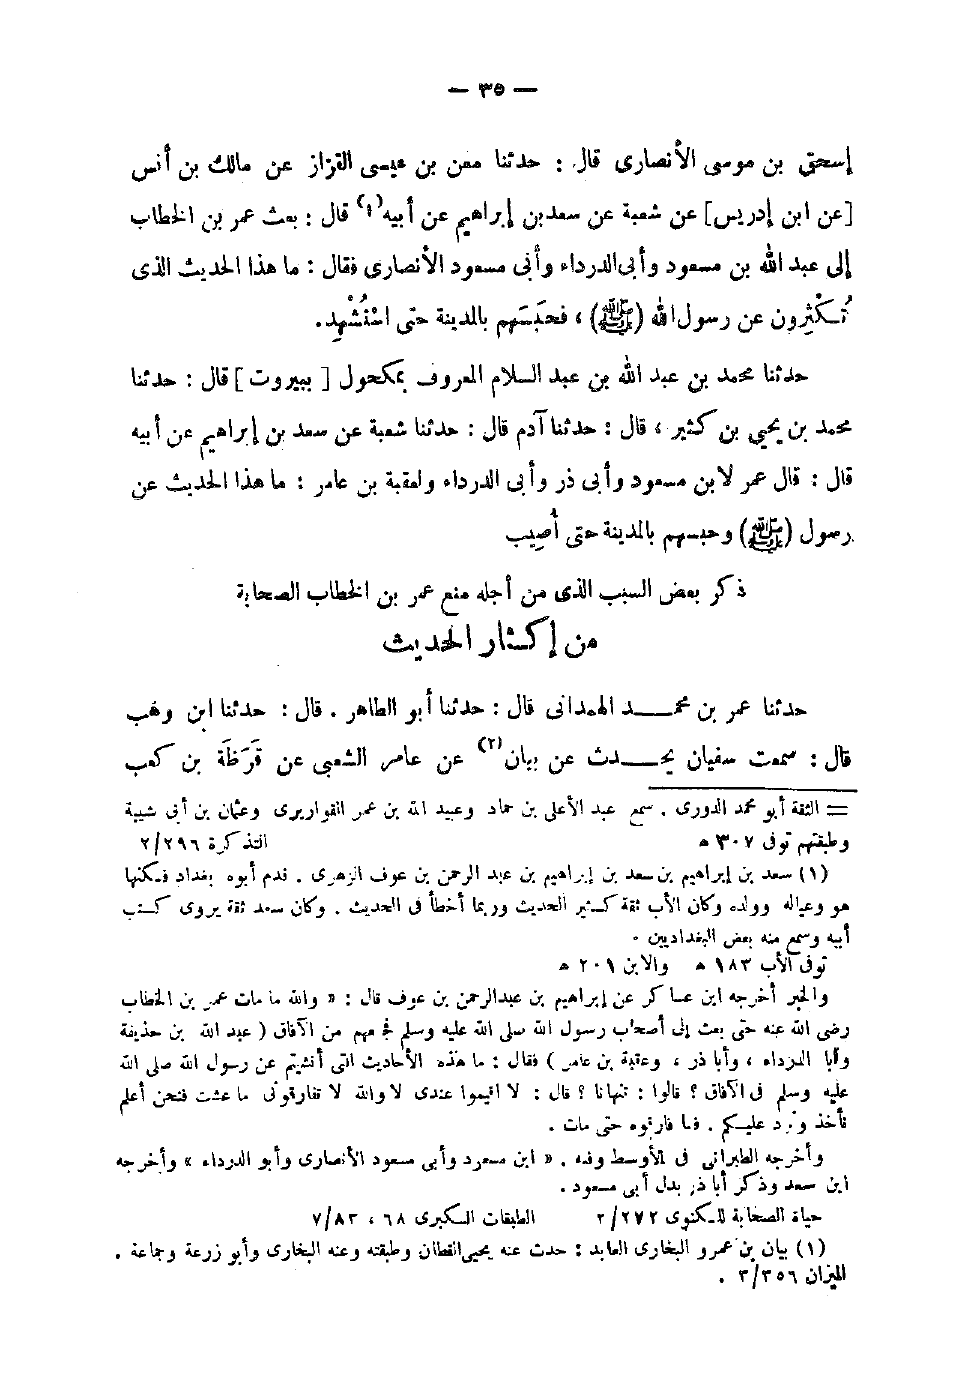 — ٣٥ —
إسحق بن موسى الأنصارى قال : حدثنا معن بن عيسى القزاز عن مالك بن أنس
[عن ابن إدريس] عن شعبة عن سعد بن إبراهيم عن أبيه(١) قال : بعث عمر بن الخطاب
إلى عبد الله بن مسعود وأبى الدرداء وأبى مسعود الأنصارى فقال : ما هذا الحديث الذى
تُكْثِرون عن رسول الله (ﷺ) ، فحَبَسَهم بالمدينة حتى اسْتُشْهِد.
حدثنا محمد بن عبد الله بن عبد السلام المعروف بمكحول [ ببيروت ] قال : حدثنا
محمد بن يحيى بن كثير ، قال : حدثنا آدم قال : حدثنا شعبة عن سعد بن إبراهيم عن أبيه
قال : قال عمر لابن مسعود وأبى ذر وأبى الدرداء ولعقبة بن عامر : ما هذا الحديث عن
رسول (ﷺ) وحبسهم بالمدينة حتى أُصِيب
ذكر بعض السبب الذى من أجله منع عمر بن الخطاب الصحابة
من إكثار الحديث
حدثنا عمر بن محمد الهمدانى قال : حدثنا أبو الطاهر . قال : حدثنا ابن وهب
قال : سمعت سفيان يحدث عن بيان(٢) عن عامر الشعبى عن قَرَظَة بن كعب
= الثقة أبو محمد الدورى . سمع عبد الأعلى بن حماد وعبيد الله بن عمر القواريرى وعثمان بن أبى شيبة
وطبقتهم توفى ٣٠٧ هـ التذكرة ٢/٢٩٦
(١) سعد بن إبراهيم بن سعد بن إبراهيم بن عبد الرحمن بن عوف الزهرى . قدم أبوه بغداد فسكنها
هو وعياله وولده وكان الأب ثقة كثير الحديث وربما أخطأ فى الحديث . وكان سعد ثقة يروى كتب
أبيه وسمع منه بعض البغداديين .
توفى الأب ١٨٣ هـ والابن ٢٠١ هـ
والخبر أخرجه ابن عساكر عن إبراهيم بن عبدالرحمن بن عوف قال : « والله ما مات عمر بن الخطاب
رضى الله عنه حتى بعث إلى أصحاب رسول الله صلى الله عليه وسلم فجمعهم من الآفاق ( عبد الله بن حذيفة
وأبا الدرداء ، وأبا ذر ، وعقبة بن عامر ) فقال : ما هذه الأحاديث التى أفشيتم عن رسول الله صلى الله
عليه وسلم فى الآفاق ؟ قالوا : تنهانا ؟ قال : لا اقيموا عندى لا والله لا تفارقونى ما عشت فنحن أعلم
نأخذ ونرد عليكم . فما فارقوه حتى مات .
وأخرجه الطبرانى فى الأوسط وفيه . « ابن مسعود وأبى مسعود الأنصارى وأبو الدرداء » وأخرجه
ابن سعد وذكر أبا ذر بدل أبى مسعود .
حياة الصحابة للكنوى ٢/٢٧٢ الطبقات الكبرى ٦٨ ، ٧/٨٣
(١) بيان بن عمرو البخارى العابد : حدث عنه يحيى القطان وطبقته وعنه البخارى وأبو زرعة وجماعة .
الميزان ٣/٣٥٦ .